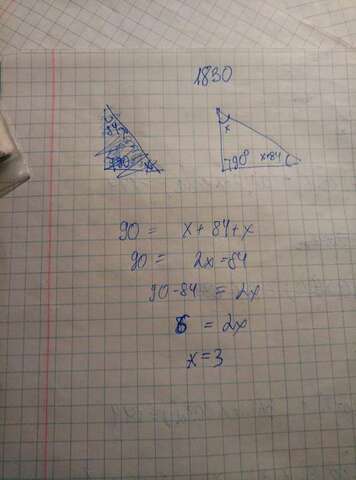 1830
x
90° x+84
90 = x + 84 + x
90 = 2x = 84
90 - 84 = 2x
6 = 2x
x = 3